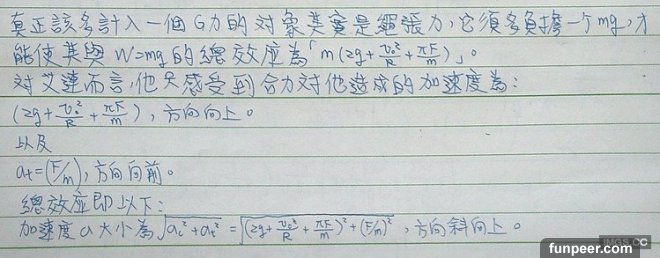 真正該多計入一個G力的對象其實是繩張力,它須多負擔一個mg,才
能使其與W=mg的總效應為「m(2g+v₀²/R+πF/m)」。
對艾連而言,他只感受到合力對他造成的加速度為:
(2g+v₀²/R+πF/m),方向向上。
以及
at=(F/m),方向向前。
總效應即以下:
加速度a大小為√(ac²+at²)=√((2g+v₀²/R+πF/m)²+(F/m)²),方向斜向上。
IMGS.CC
funpeer.com